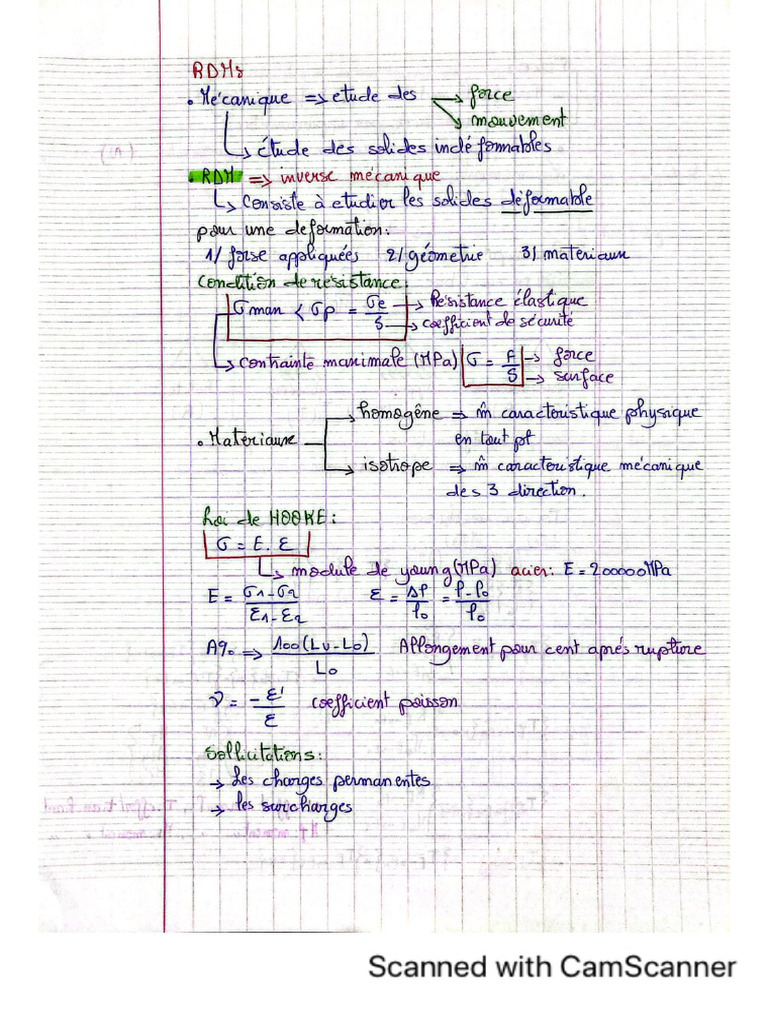 RDMs
• Mécanique => etude des → force
→ mouvement
↳ étude des solides indéformables
• RDM => inverse mécanique
↳ Consiste à etudier les solides déformable
pour une deformation:
1/ forse appliquées 2/ géometrie 3/ materiaux
Condition de résistance:
σmax < σp = σe/s → Résistance élastique
→ coefficient de sécurité
↳ contrainte maximale (MPa) σ = F/S → force
→ surface
homogène => m̂ caracteristique physique
en tout pt
• Materiaux
isotrope => m̂ caracteristique mécanique
des 3 direction.
Loi de HOOKE:
σ = E. ε
↳ module de young (MPa) acier: E = 200000MPa
E = σ1-σ2/ε1-ε2 ε = Δl/l0 = l-l0/l0
A% => 100(Lu-L0)/L0 Allongement pour cent aprés rupture
ν = -ε'/ε coefficient poisson
Sollicitations:
→ Les charges permanentes
→ les surcharges
Scanned with CamScanner